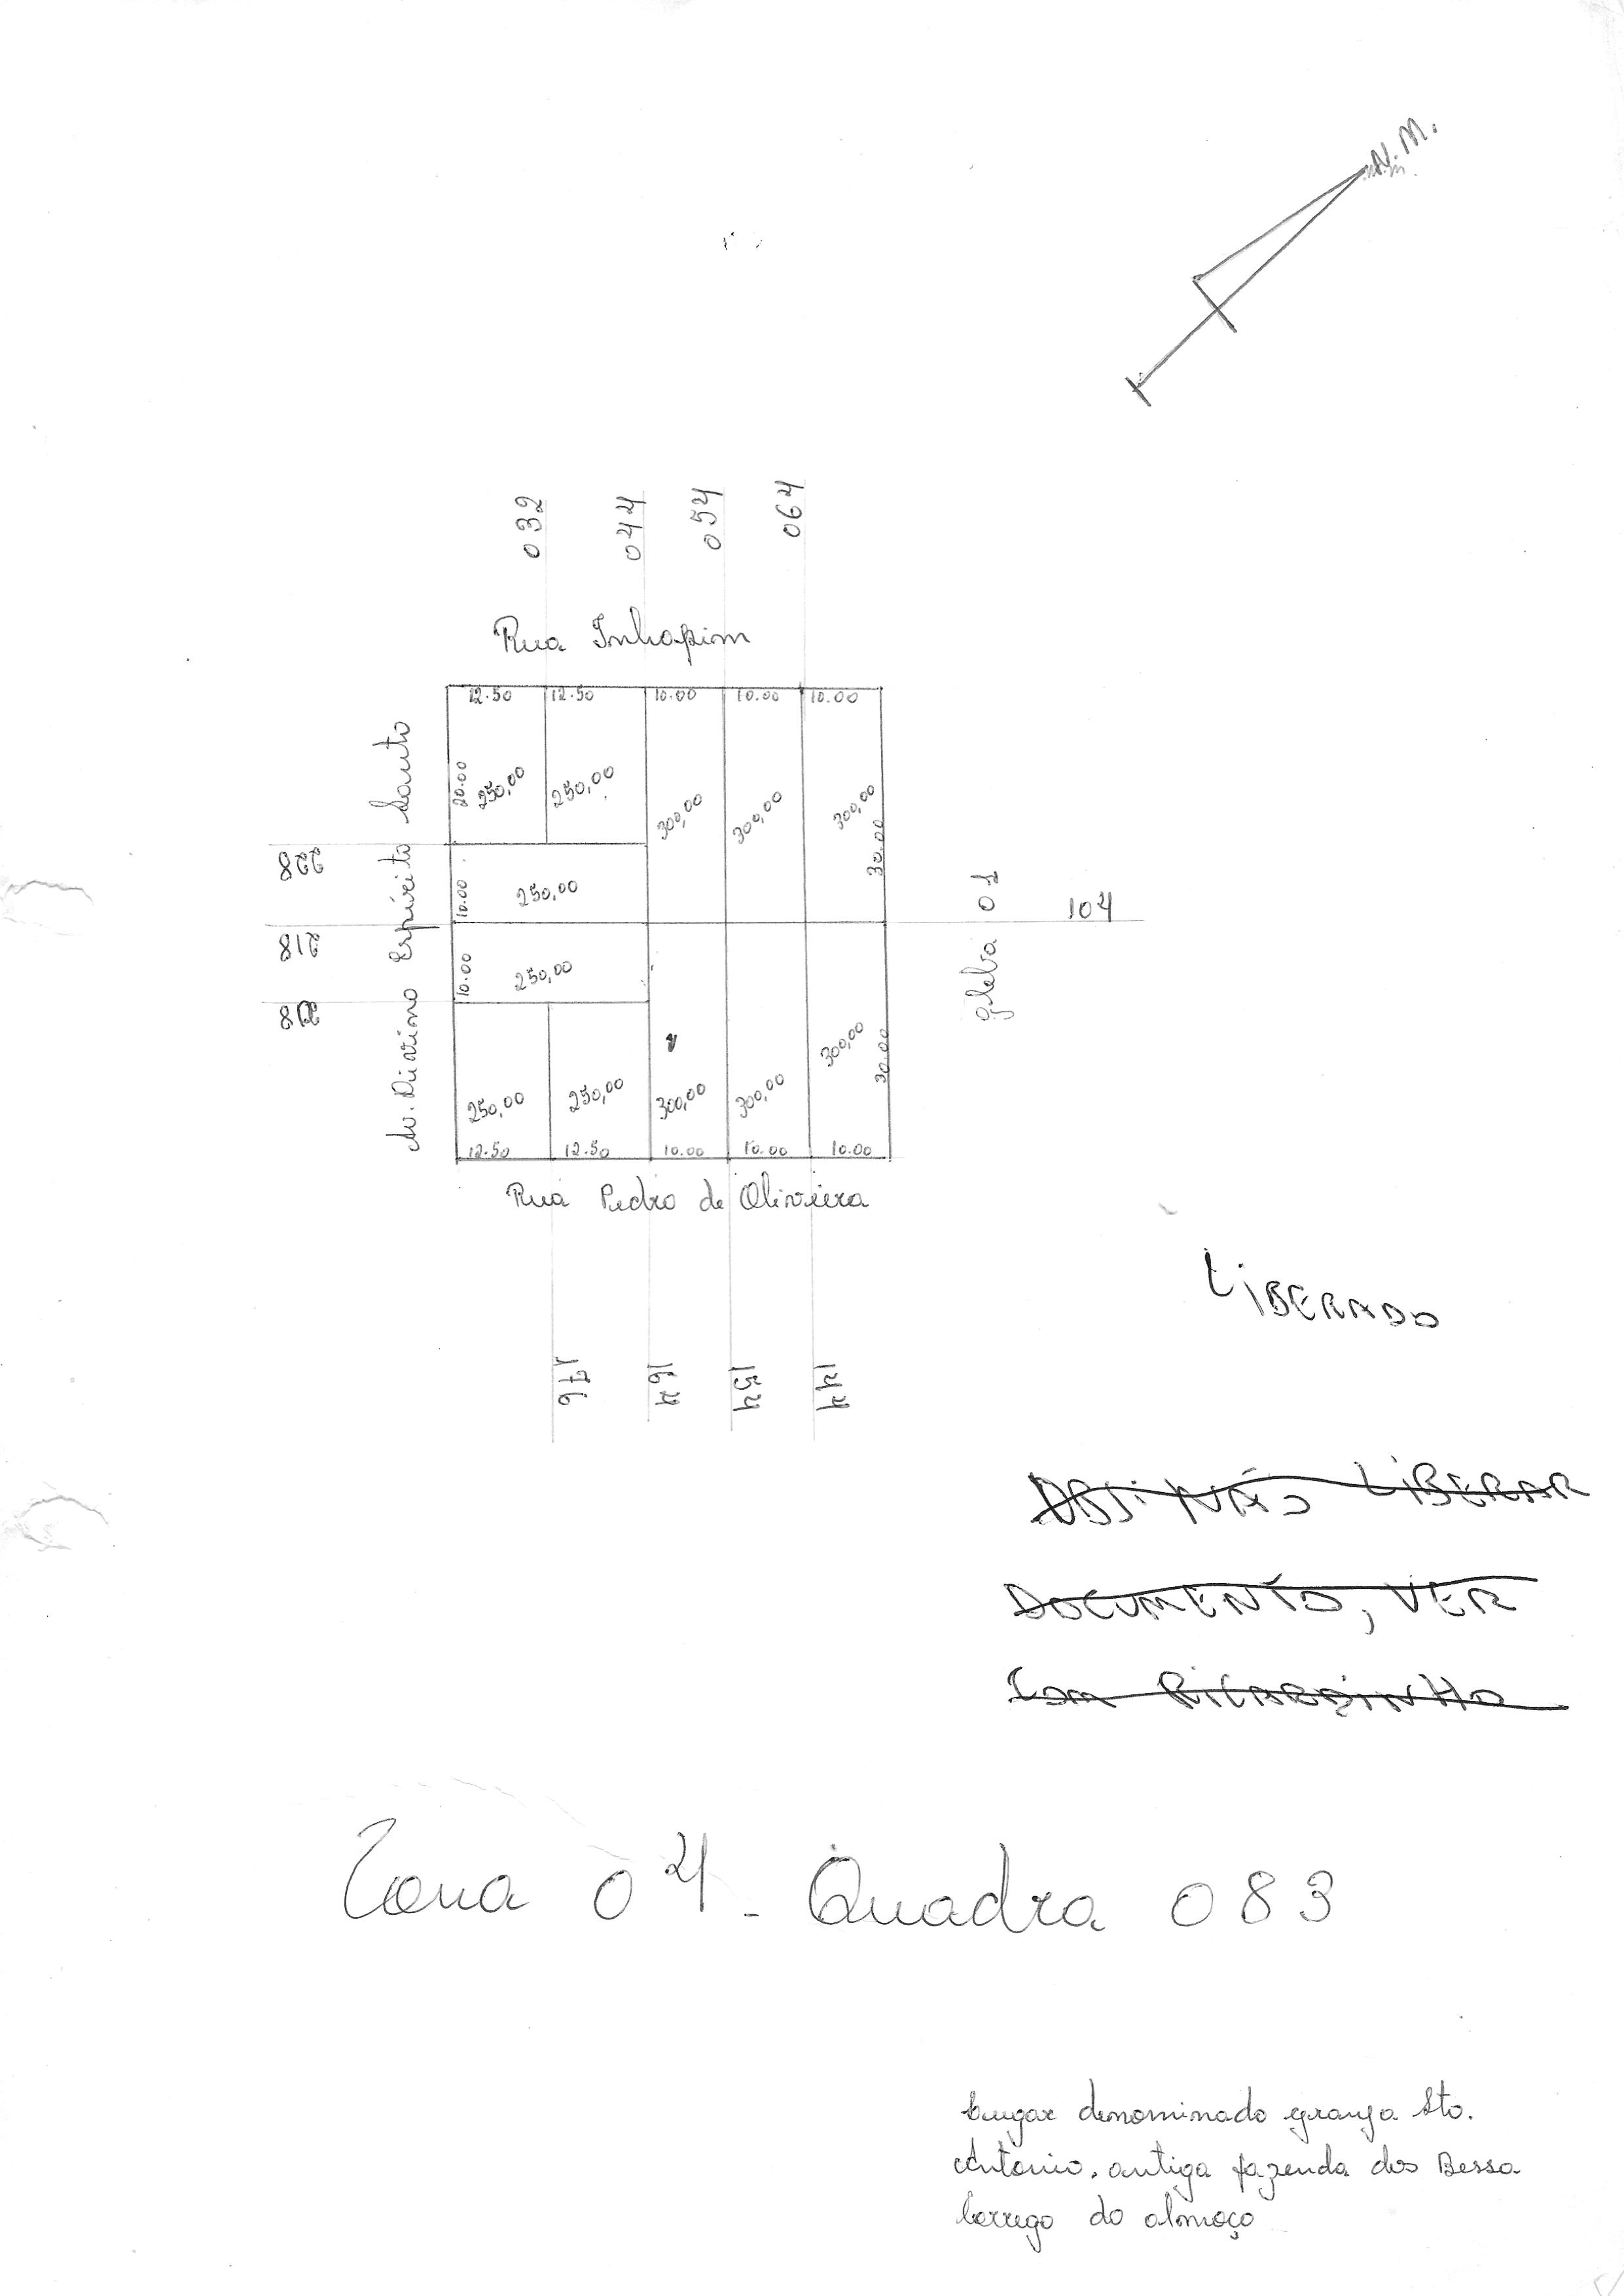 N.M.
032
044
054
064
Rua Inhapim
12.50 12.50 10.00 10.00 10.00
20.00
250,00 250,00 300,00 300,00 300,00
30.00
Av. Divino Espírito Santo
228
10.00 250,00
218
10.00 250,00
208
gleba 01
104
250,00 250,00 300,00 300,00 300,00
30.00
12.50 12.50 10.00 10.00 10.00
Rua Pedro de Oliveira
176
164
154
144
LIBERADO
OBS: NÃO LIBERAR
DOCUMENTO, VER
COM RICARDINHO
Zona 04 - Quadra 083
lugar denominado granja Sto.
Antonio, antiga fazenda dos Bessa
Corrego do almoço